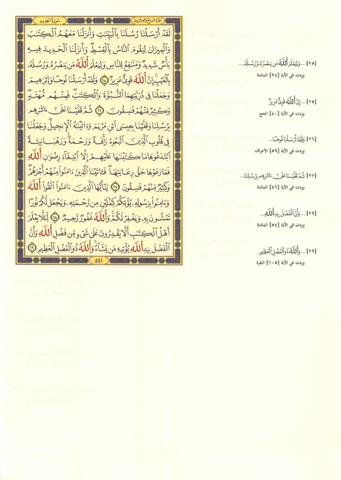 سورة الحديد
لَقَدْ أَرْسَلْنَا رُسُلَنَا بِٱلْبَيِّنَٰتِ وَأَنزَلْنَا مَعَهُمُ ٱلْكِتَٰبَ
وَٱلْمِيزَانَ لِيَقُومَ ٱلنَّاسُ بِٱلْقِسْطِ وَأَنزَلْنَا ٱلْحَدِيدَ فِيهِ
بَأْسٌ شَدِيدٌ وَمَنَٰفِعُ لِلنَّاسِ وَلِيَعْلَمَ ٱللَّهُ مَن يَنصُرُهُۥ وَرُسُلَهُۥ
بِٱلْغَيْبِ إِنَّ ٱللَّهَ قَوِىٌّ عَزِيزٌ ٢٥ وَلَقَدْ أَرْسَلْنَا نُوحًا وَإِبْرَٰهِيمَ
وَجَعَلْنَا فِى ذُرِّيَّتِهِمَا ٱلنُّبُوَّةَ وَٱلْكِتَٰبَ فَمِنْهُم مُّهْتَدٍ
وَكَثِيرٌ مِّنْهُمْ فَٰسِقُونَ ٢٦ ثُمَّ قَفَّيْنَا عَلَىٰٓ ءَاثَٰرِهِم
بِرُسُلِنَا وَقَفَّيْنَا بِعِيسَى ٱبْنِ مَرْيَمَ وَءَاتَيْنَٰهُ ٱلْإِنجِيلَ وَجَعَلْنَا
فِى قُلُوبِ ٱلَّذِينَ ٱتَّبَعُوهُ رَأْفَةً وَرَحْمَةً وَرَهْبَانِيَّةً
ٱبْتَدَعُوهَا مَا كَتَبْنَٰهَا عَلَيْهِمْ إِلَّا ٱبْتِغَآءَ رِضْوَٰنِ ٱللَّهِ
فَمَا رَعَوْهَا حَقَّ رِعَايَتِهَا فَـَٔاتَيْنَا ٱلَّذِينَ ءَامَنُوا۟ مِنْهُمْ أَجْرَهُمْ
وَكَثِيرٌ مِّنْهُمْ فَٰسِقُونَ ٢٧ يَٰٓأَيُّهَا ٱلَّذِينَ ءَامَنُوا۟ ٱتَّقُوا۟ ٱللَّهَ
وَءَامِنُوا۟ بِرَسُولِهِۦ يُؤْتِكُمْ كِفْلَيْنِ مِن رَّحْمَتِهِۦ وَيَجْعَل لَّكُمْ نُورًا
تَمْشُونَ بِهِۦ وَيَغْفِرْ لَكُمْ وَٱللَّهُ غَفُورٌ رَّحِيمٌ ٢٨ لِّئَلَّا يَعْلَمَ
أَهْلُ ٱلْكِتَٰبِ أَلَّا يَقْدِرُونَ عَلَىٰ شَىْءٍ مِّن فَضْلِ ٱللَّهِ وَأَنَّ
ٱلْفَضْلَ بِيَدِ ٱللَّهِ يُؤْتِيهِ مَن يَشَآءُ وَٱللَّهُ ذُو ٱلْفَضْلِ ٱلْعَظِيمِ ٢٩
٥٤١
[٢٥] ...وَلِيَعْلَمَ ٱللَّهُ مَن يَنصُرُهُۥ وَرُسُلَهُۥ...
وردت في الآية [٩٤] المائدة
[٢٥] ...إِنَّ ٱللَّهَ قَوِىٌّ عَزِيزٌ
وردت في الآية [٤٠] الحج
[٢٦] وَلَقَدْ أَرْسَلْنَا نُوحًا...
وردت في الآية [٥٩] الأعراف
[٢٧] ثُمَّ قَفَّيْنَا عَلَىٰٓ ءَاثَٰرِهِم بِرُسُلِنَا...
وردت في الآية [٤٦] المائدة
[٢٩] ...وَأَنَّ ٱلْفَضْلَ بِيَدِ ٱللَّهِ...
وردت في الآية
[٢٩] ...وَٱللَّهُ ذُو ٱلْفَضْلِ ٱلْعَظِيمِ
وردت في الآية [١٠٥] البقرة